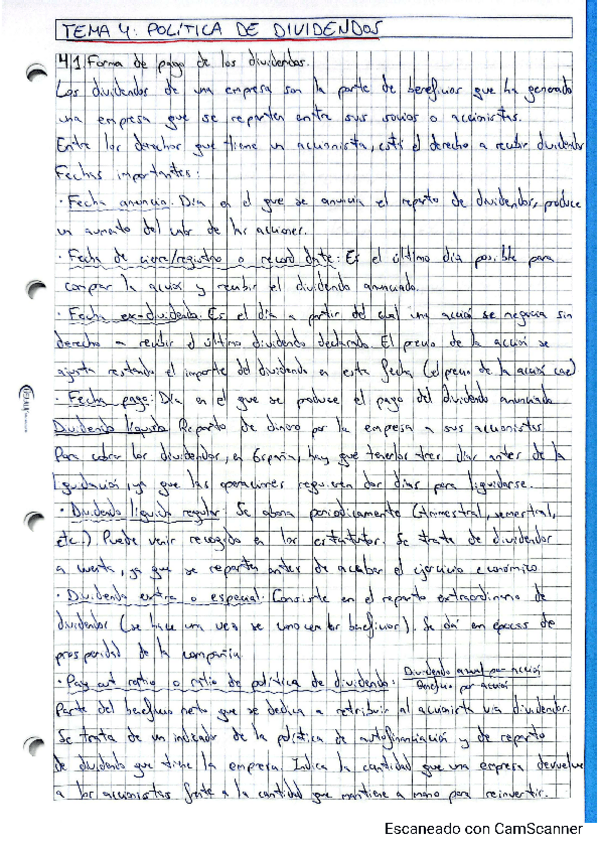 TEMA 4: POLÍTICA DE DIVIDENDOS
4.1 Forma de pago de los dividendos.
Los dividendos de una empresa son la parte de beneficios que ha generado
una empresa que se reparten entre sus socios o accionistas.
Entre los derechos que tiene un accionista, está el derecho a recibir dividendos
Fechas importantes:
· Fecha anuncio: Día en el que se anuncia el reparto de dividendos, produce
un aumento del valor de las acciones.
· Fecha de cierre/registro o record date: Es el último día posible para
comprar la acción y recibir el dividendo anunciado.
· Fecha ex-dividendo: Es el día a partir del cual una acción se negocia sin
derecho a recibir el último dividendo declarado. El precio de la acción se
ajusta restando el importe del dividendo en esta fecha (el precio de la acción cae)
· Fecha pago: Día en el que se produce el pago del dividendo anunciado
Dividendo líquido: Reparto de dinero por la empresa a sus accionistas
Para cobrar los dividendos, en España, hay que tenerlos tres días antes de la
liquidación, ya que las operaciones requieren dos días para liquidarse.
· Dividendo líquido regular: Se abona periodicamente (trimestral, semestral,
etc.). Puede venir recogido en los estatutos. Se trata de dividendos
a cuenta, ya que se reparten antes de acabar el ejercicio económico
· Dividendo extra o especial: Consiste en el reparto extraordinario de
dividendos (se hace una vez se conocen los beneficios). Se dá en épocas de
prosperidad de la compañía
· Pay out ratio o ratio de política de dividendo: Dividendo anual por acción
Beneficio por acción
Parte del beneficio neto que se dedica a retribuir al accionista via dividendos.
Se trata de un indicador de la política de autofinanciación y de reparto
de dividendo que tiene la empresa. Indica la cantidad que una empresa devuelve
a los accionistas frente a la cantidad que mantiene a mano para reinvertir.
Escaneado con CamScanner